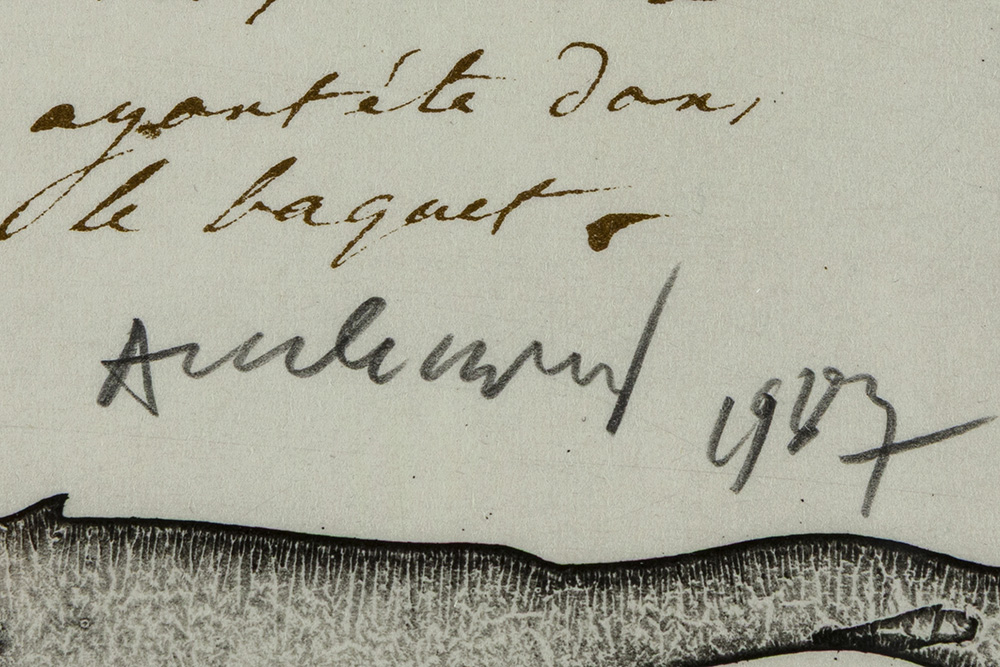 ayant été dans
le baquet.
1987